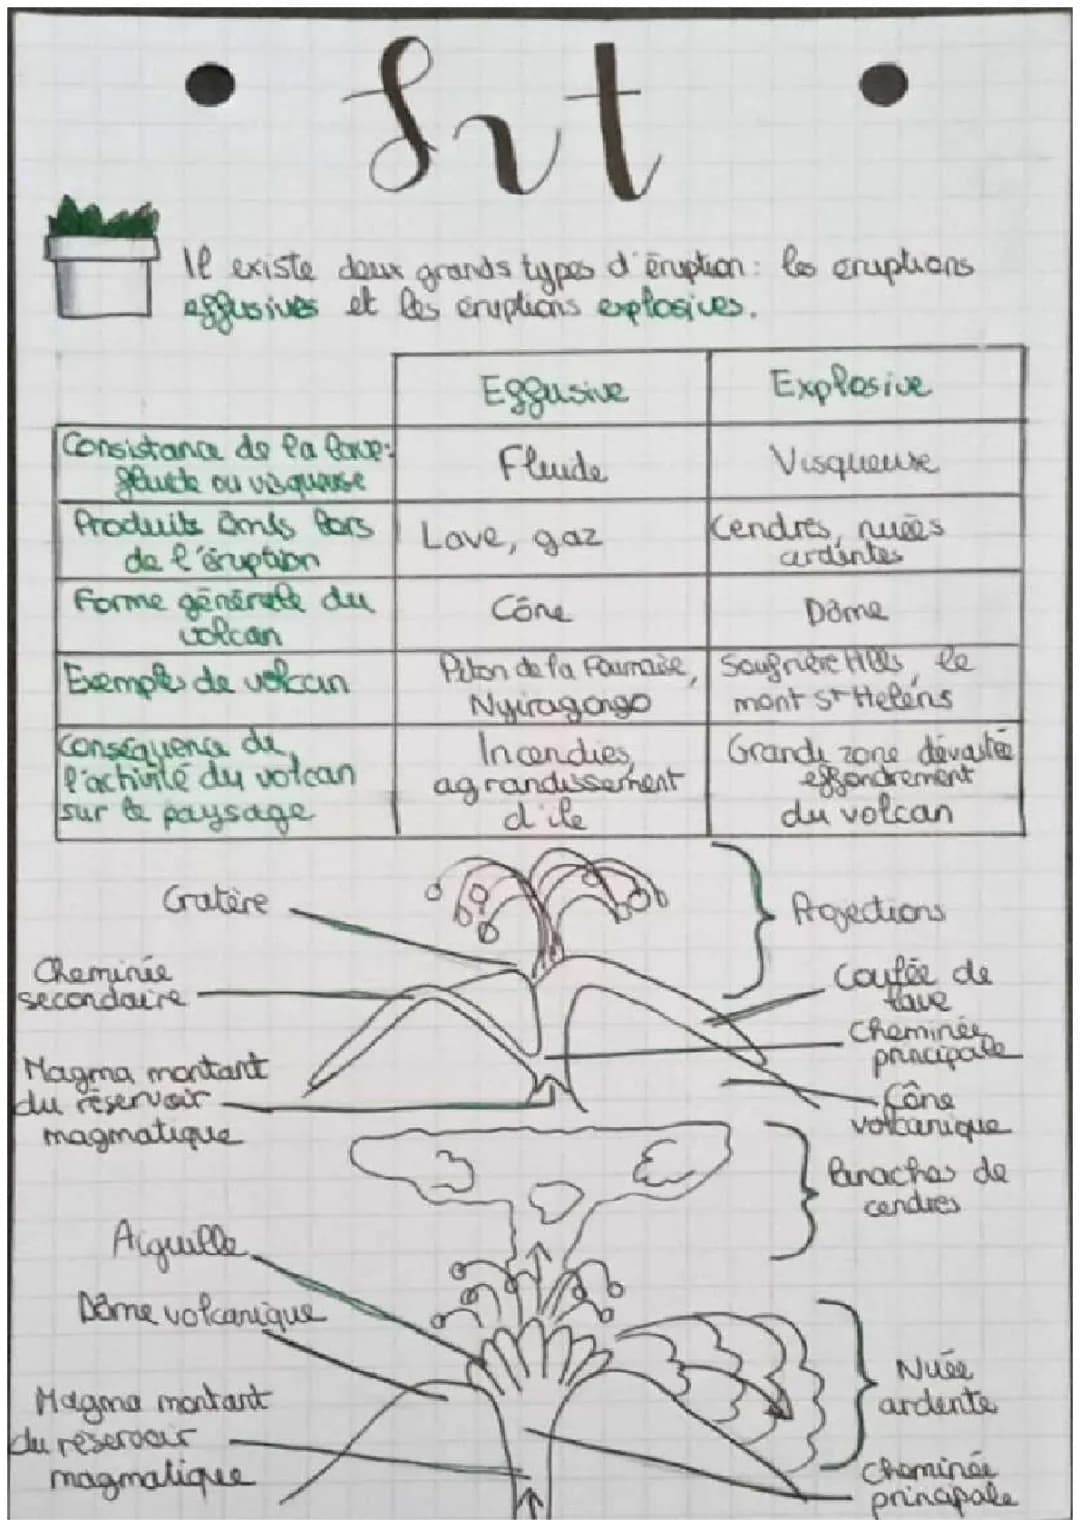 Svt
Il existe deux grands types d'éruption : les éruptions
effusives et les éruptions explosives.
Effusive
Explosive
Consistance de la lave :
fluide ou visqueuse
Fluide
Visqueuse
Produits émis lors
de l'éruption
Lave, gaz
Cendres, nuées
ardentes
Forme générale du
volcan
Cône
Dôme
Exemples de volcan
Piton de la Fournaise,
Nyiragongo
Soufrière Hills, le
mont St Helens
Conséquence de
l'activité du volcan
sur le paysage
Incendies,
agrandissement
d'île
Grande zone dévastée
effondrement
du volcan
Cratère
Projections
Cheminée
secondaire
Coulée de
lave
Cheminée
principale
Magma montant
du réservoir
magmatique
Cône
volcanique
Panaches de
cendres
Aiguille
Dôme volcanique
Nuée
ardente
Magma montant
du réservoir
magmatique
Cheminée
principale